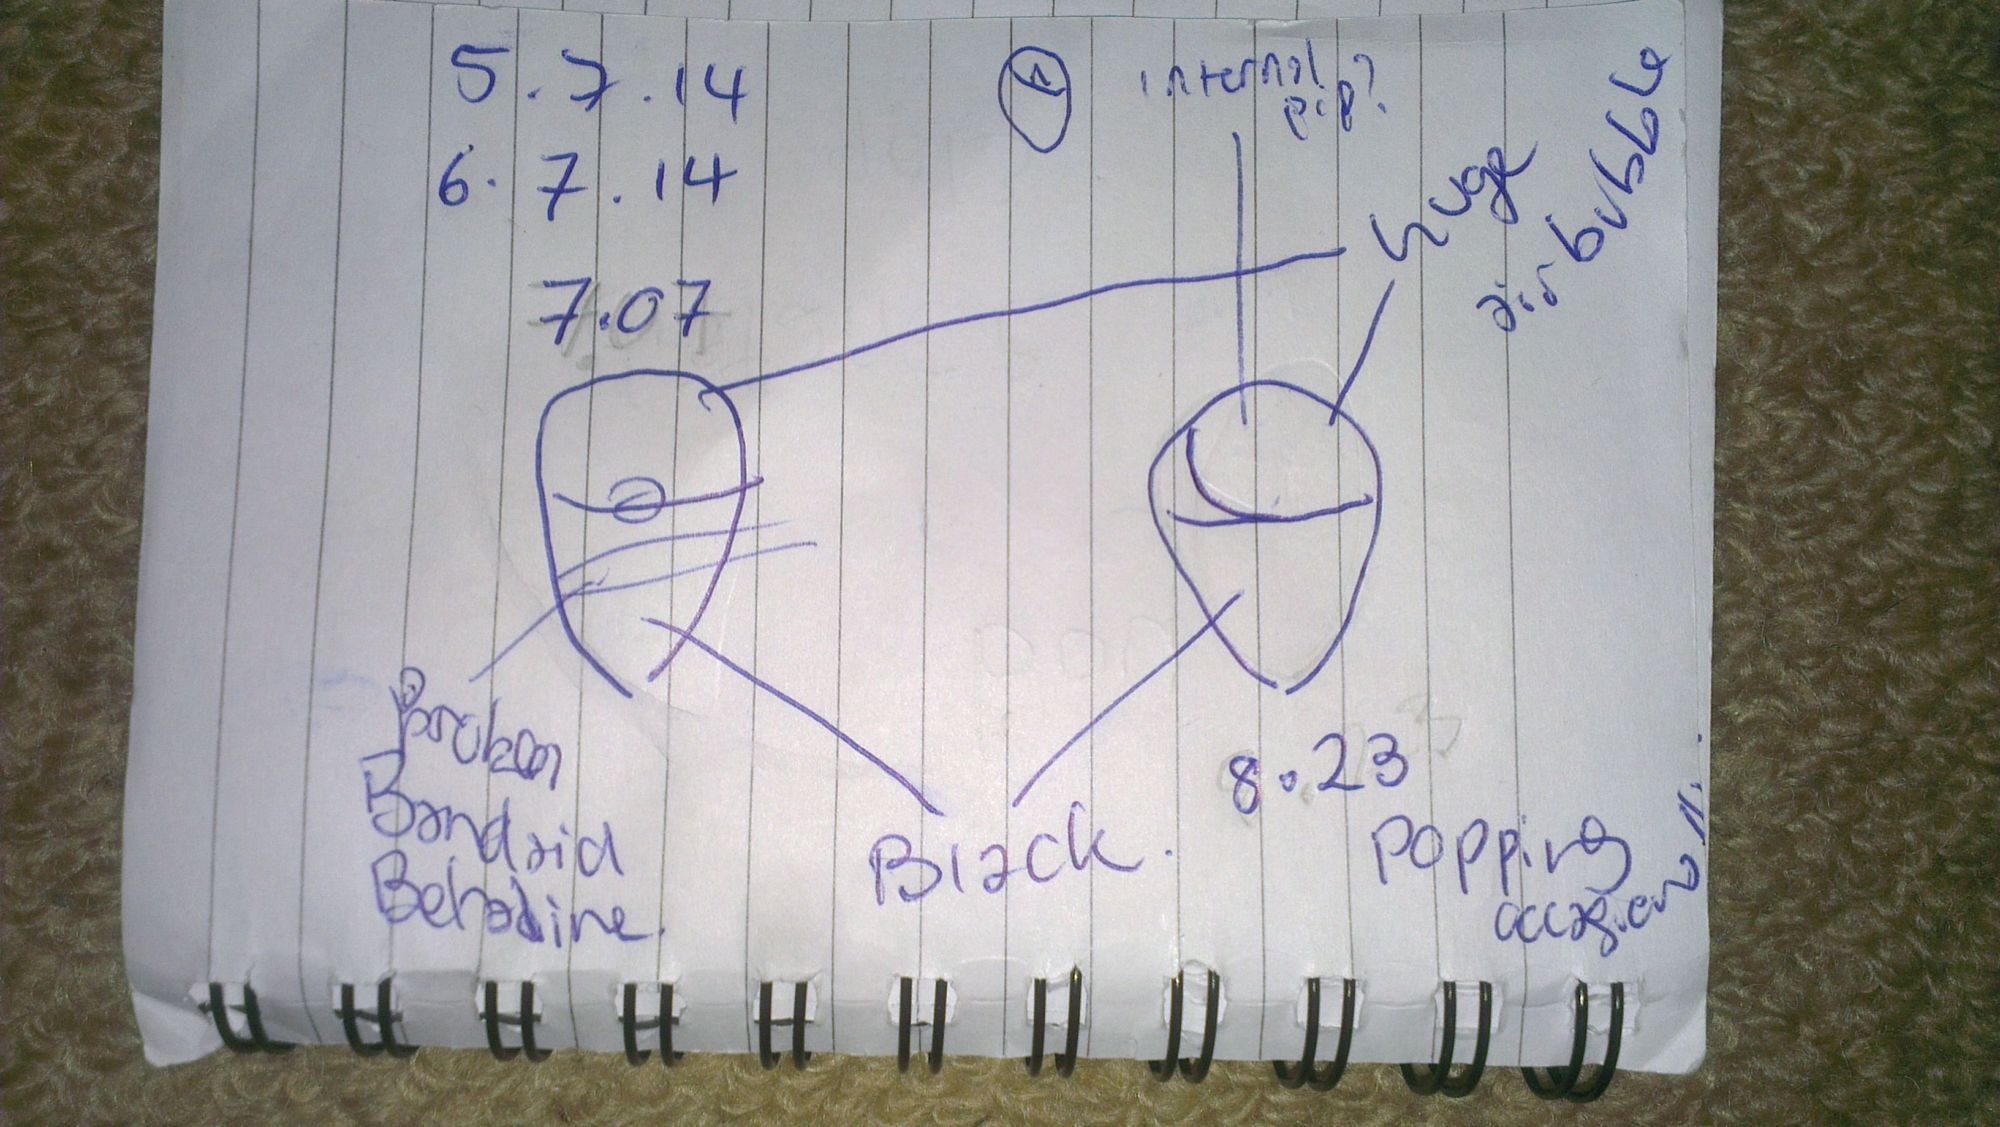 5.7.14
6.7.14
7.07
internal
pip?
huge
airbubble
Broken
Bandaid
Betadine.
Black.
8.23
Popping